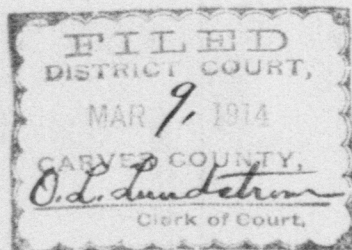 FILED
DISTRICT COURT,
MAR 9, 1914
CARVER COUNTY,
O. L. Lundstrom
Clerk of Court.